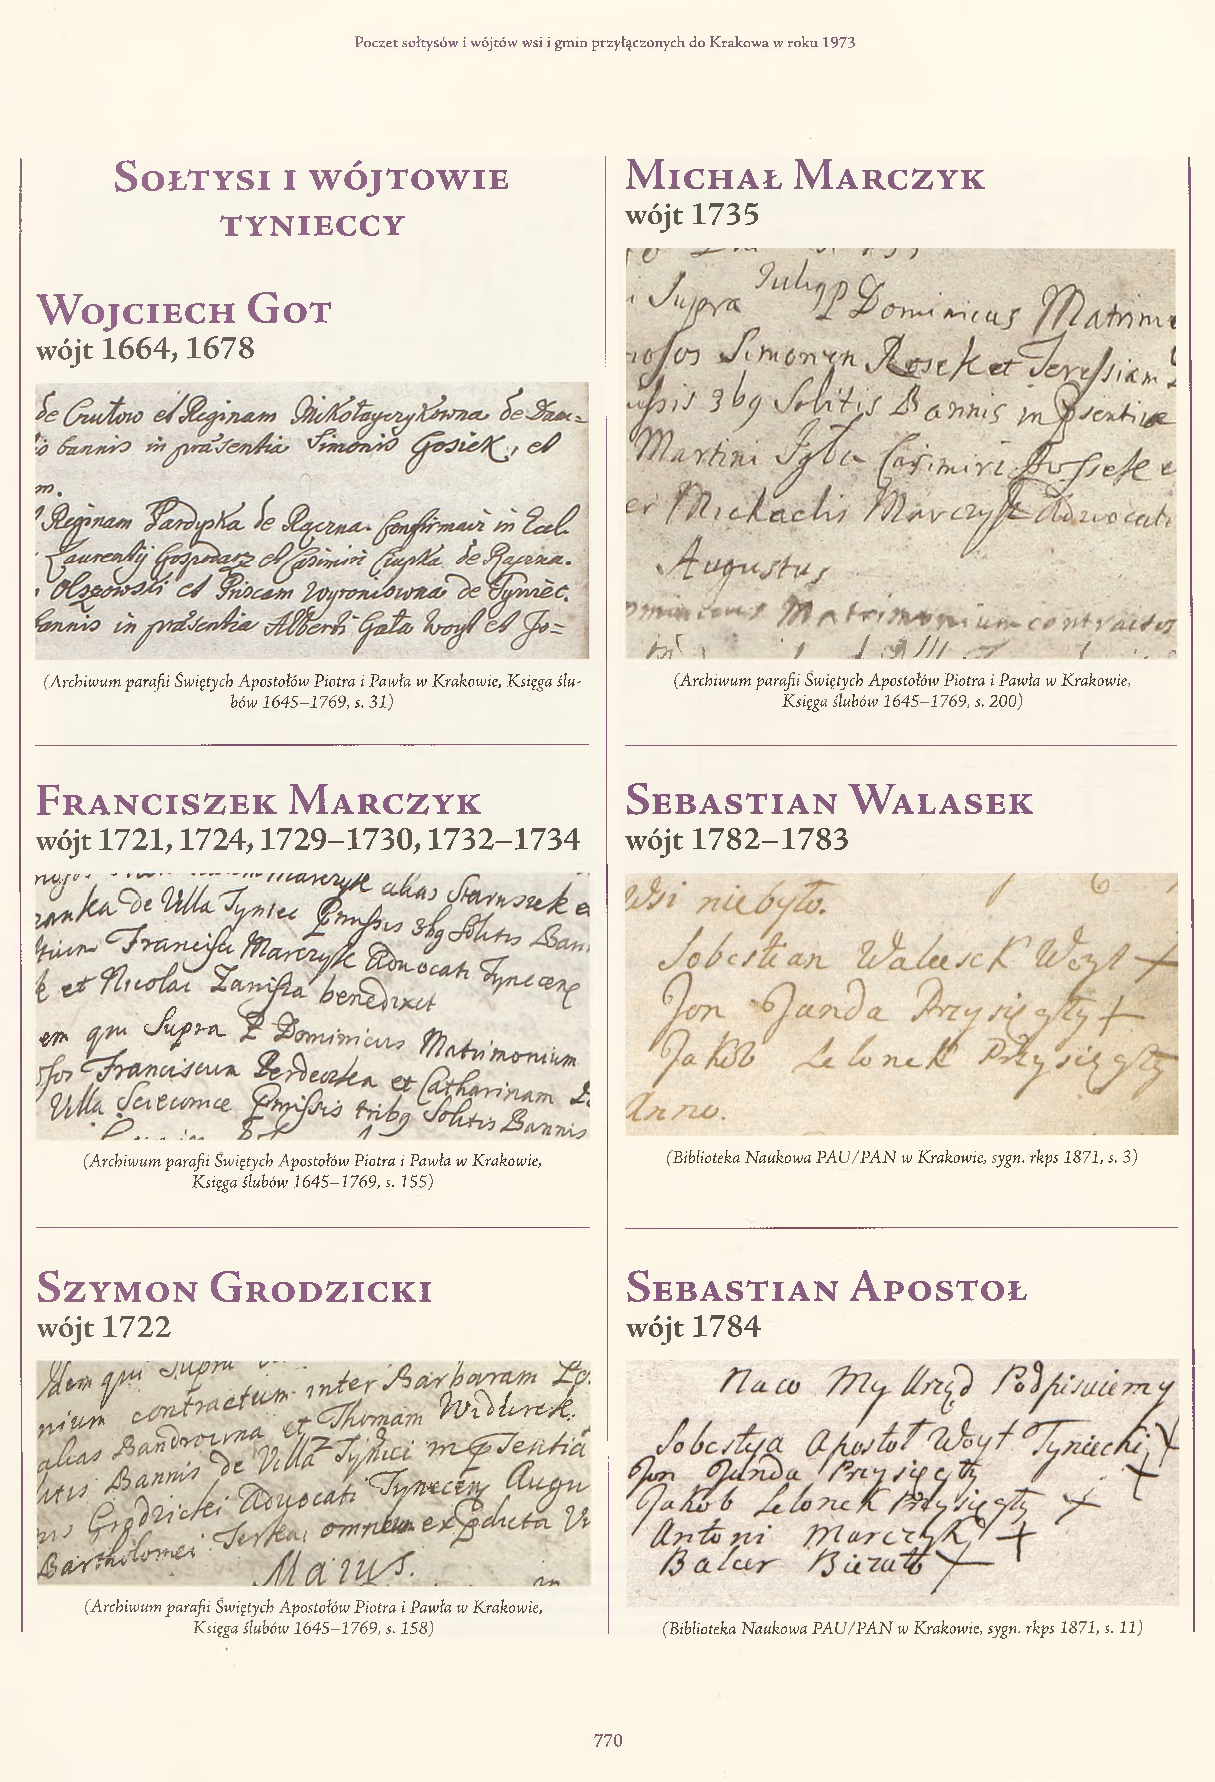 Poczet sołtysów i wójtów wsi i gmin przyłączonych do Krakowa w roku 1973
Sołtysi i wójtowie
tynieccy
Wojciech Got
wójt 1664, 1678
de Czułow et Reginam Mikołayczykowna de
bannis in præsentia Simonis Gosiek, et
m.
Reginam de Rączna. in
Laurentij Gospodarz et Casimiri Czupka de Rączna.
et de Tyniec.
bannis in præsentia Alberti Gata woyt et Jo=
(Archiwum parafii Świętych Apostołów Piotra i Pawła w Krakowie, Księga ślu-
bów 1645–1769, s. 31)
Franciszek Marczyk
wójt 1721, 1724, 1729–1730, 1732–1734
Marczyk alias Staruszek e
de Villa Tyniec Pmissis 3bq Solitis Ban
Francisci Marczyk Advocati Tynecen
et Nicolai benedixit
em qui Supra P Dominicus Matrimonium
Franciscum et Catharinam
Villa Sciecowice Pmissis tribq Solitis Bannis
(Archiwum parafii Świętych Apostołów Piotra i Pawła w Krakowie,
Księga ślubów 1645–1769, s. 155)
Szymon Grodzicki
wójt 1722
Idem qui Supra
nium contractum inter Barbaram
alias Bandrowna et Thomam Widurek
litis Bannis de Villa Tynici in Psentia
Grodzicki Advocati Tynecen Augu
Bartholomei omnem
Maius.
(Archiwum parafii Świętych Apostołów Piotra i Pawła w Krakowie,
Księga ślubów 1645–1769, s. 158)
Michał Marczyk
wójt 1735
Supra Dominicus Matrim
Simonem Rosek et Teressiam
3bq Solitis Bannis in Psentia
Martini Casimiri e
er Michaelis Marczyk Advocati
Augustus
Matrimonium contractus
(Archiwum parafii Świętych Apostołów Piotra i Pawła w Krakowie,
Księga ślubów 1645–1769, s. 200)
Sebastian Walasek
wójt 1782–1783
Wsi niebyło.
Sobestian Walesek Woyt +
Jon Janda Przysięgły +
Jakob Lelonek Przysięgły
Anno.
(Biblioteka Naukowa PAU/PAN w Krakowie, sygn. rkps 1871, s. 3)
Sebastian Apostoł
wójt 1784
Naco My Urzęd Podpisuiemy
Sobestya Apostoł Woyt Tyniecki +
Jon Janda Przysięgły +
Jakob Lelonek Przysięgły +
Antoni Marczyk +
Balcer +
(Biblioteka Naukowa PAU/PAN w Krakowie, sygn. rkps 1871, s. 11)
770